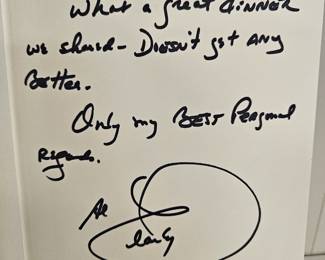 What a great dinner
we shared - Doesn't get any
Better.
Only my Best Personal
Regards.
Al